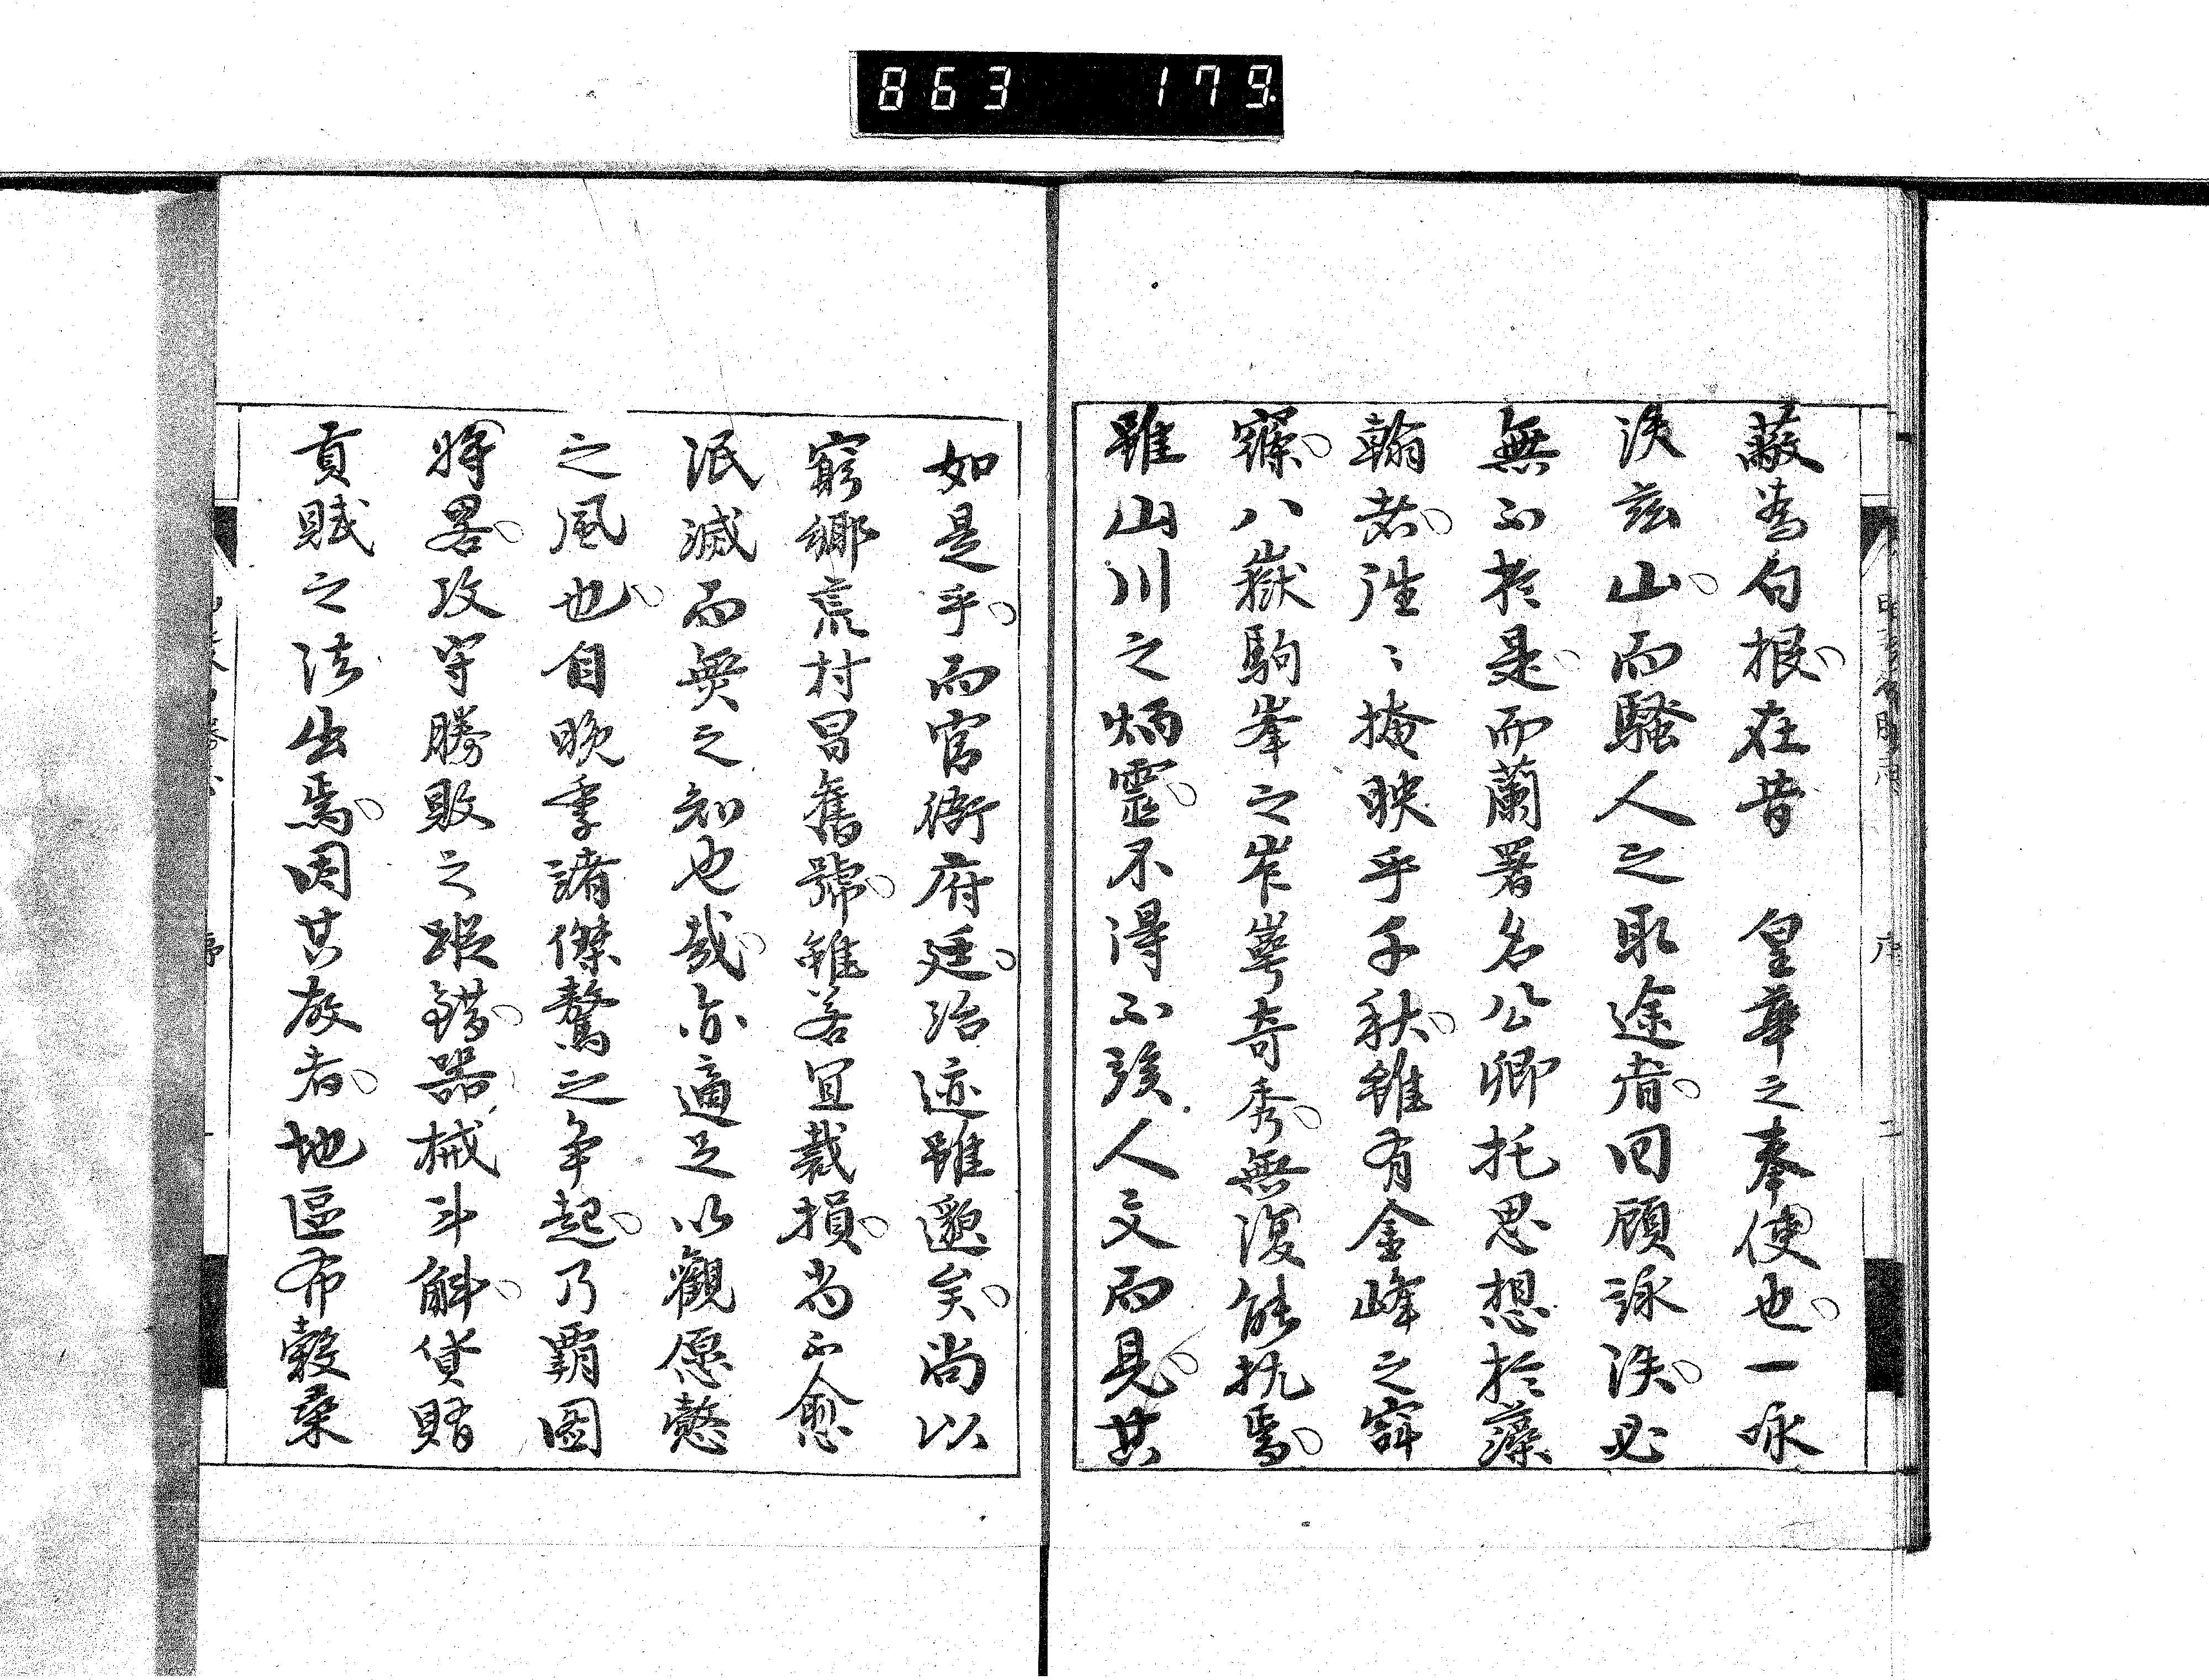 863 179.
蔽為勾根、在昔 皇華之奉使也、一咏
洩玆山、而騷人之取途者、回顧詠洩、必
無不於是、而蘭署名公卿托思想於藻
翰者、往〻掩映乎千秋、雖有金峰之窟
窿、八嶽駒峯之岞崿奇秀、無復能抗焉、
雖山川之炳靈、不得不竢人文而見、其
如是乎、而官衙府廷、治迹雖邈矣、尚以
窮鄉荒村冒舊號、雖若宜裁損、尚不愈
泯滅而無之知也哉、亦適足以觀愿愨
之風也、自晚季諸傑驁之爭起、乃霸國
將畧、攻守勝敗之蹤錯、器械斗斛、貨賄
貢賦之法出焉、因其故者、地區布穀桒
序 二
序